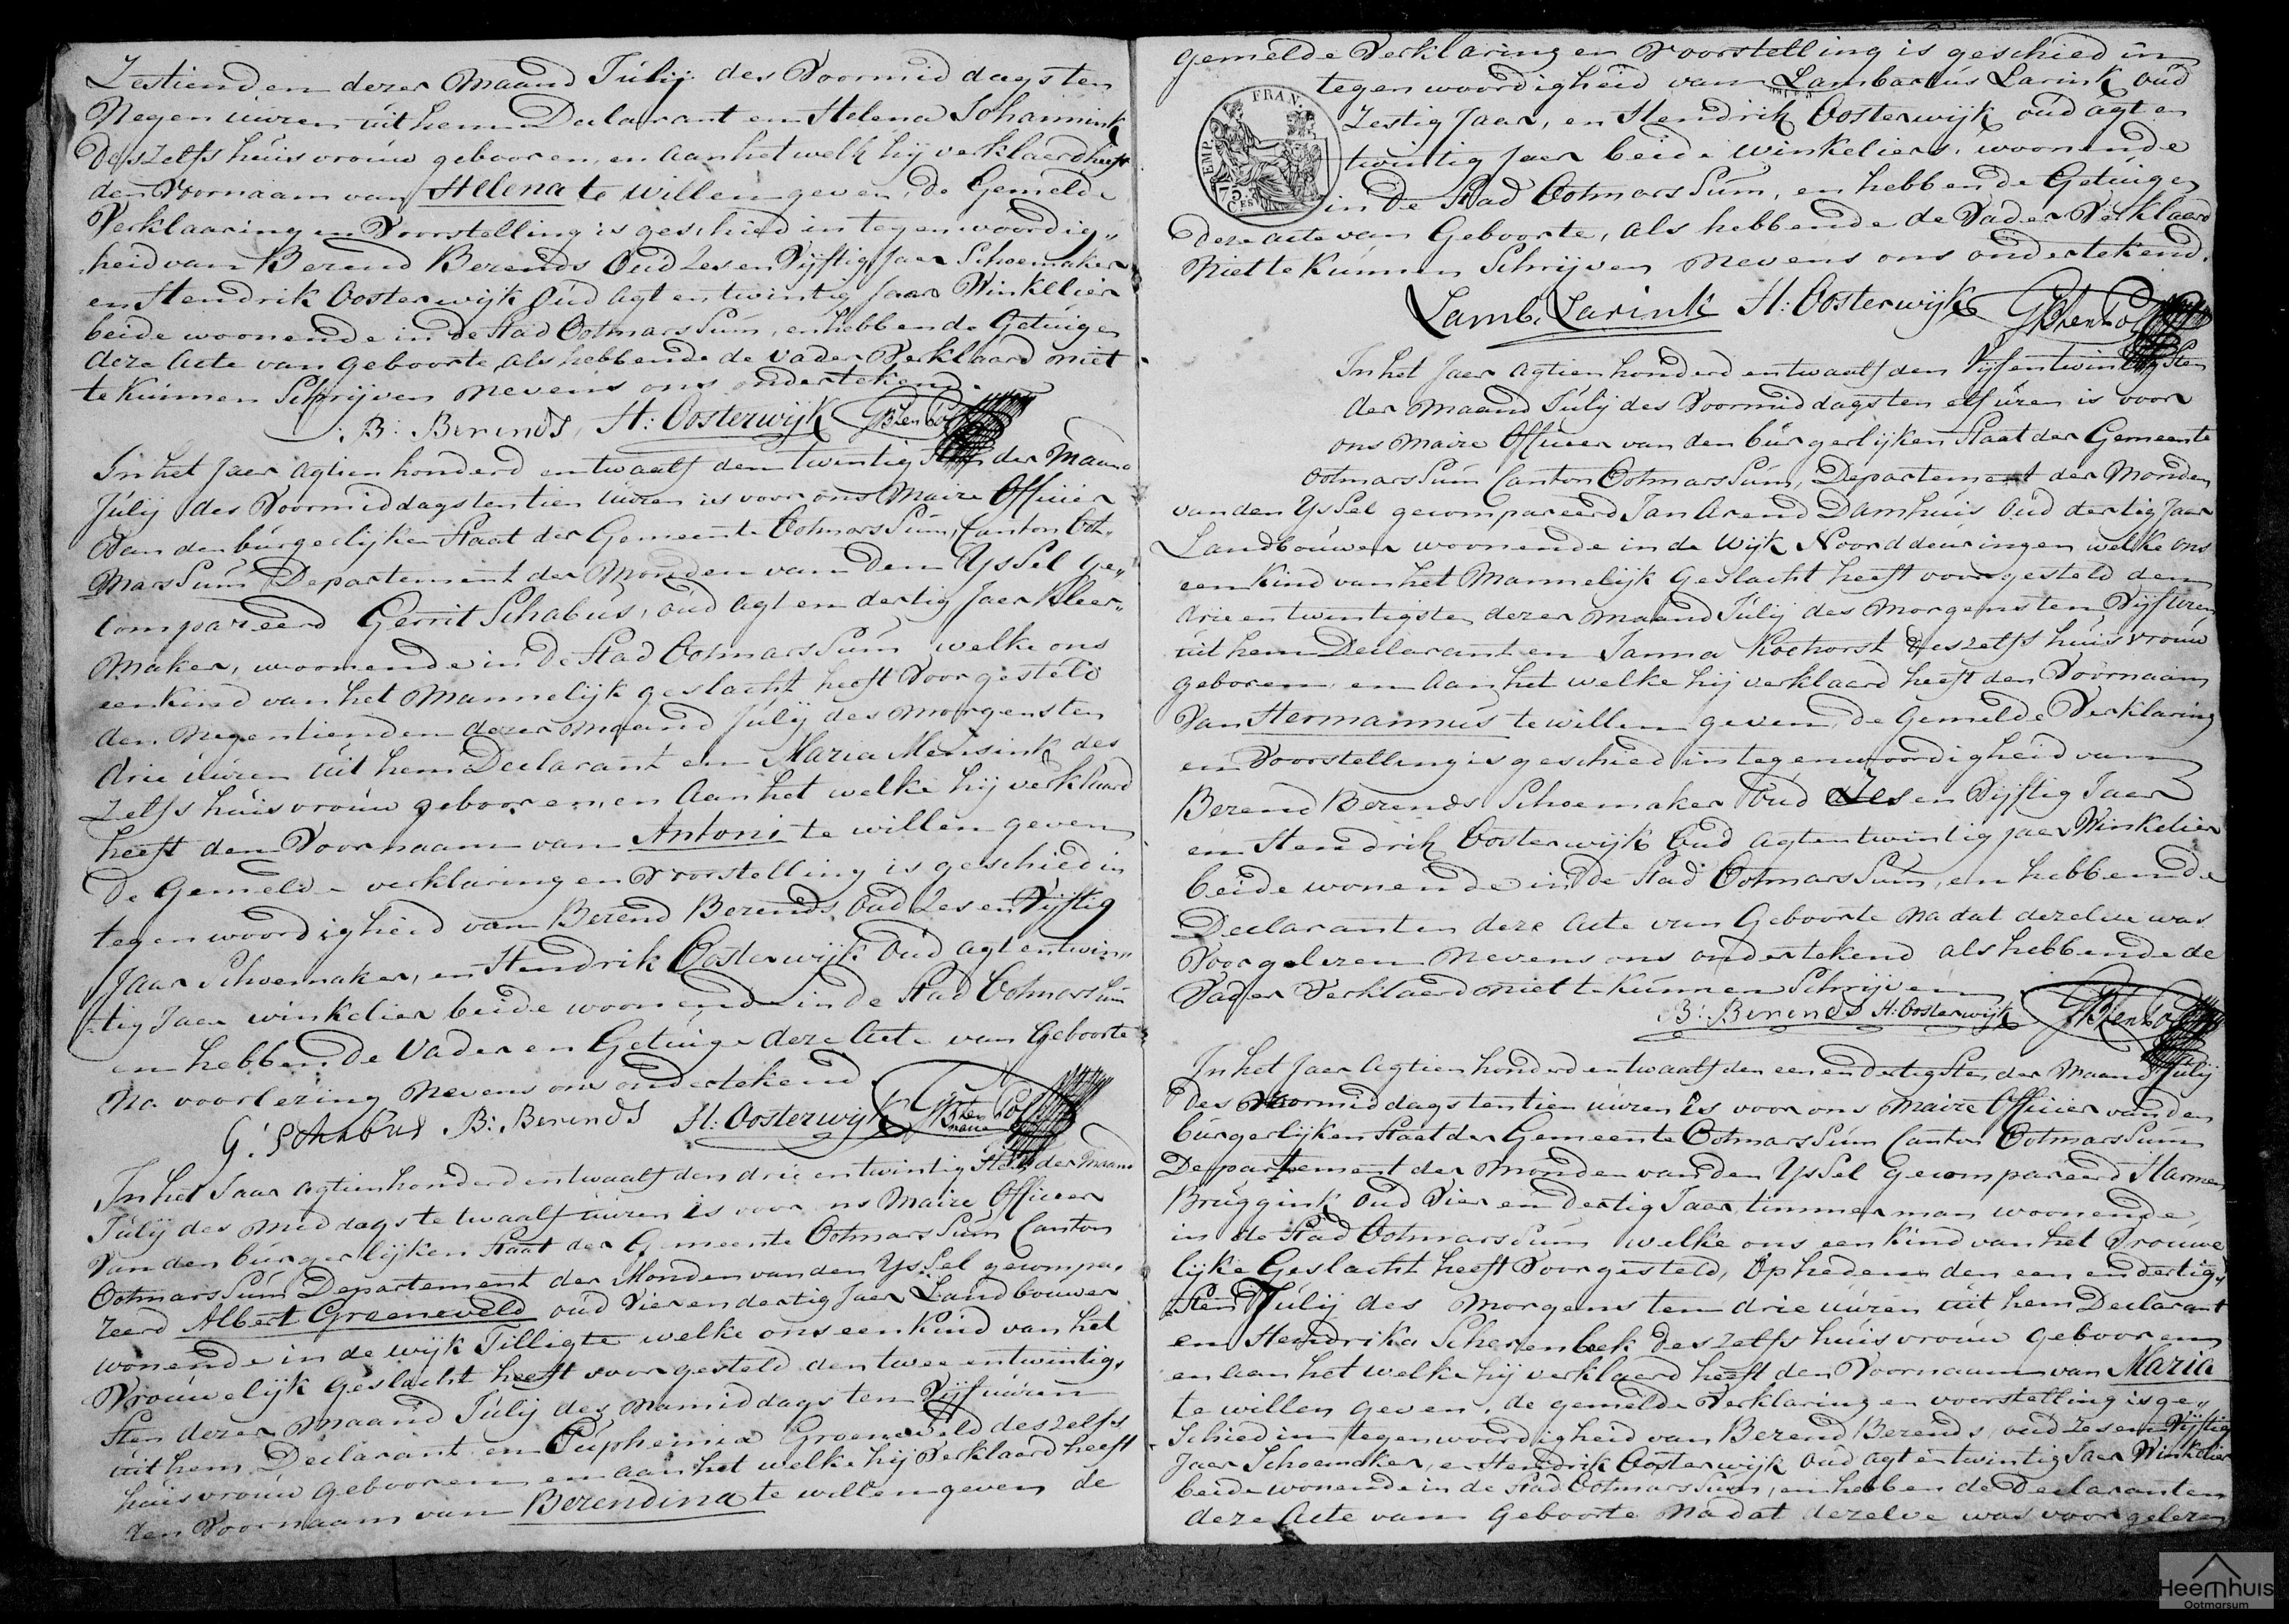 Zestienden dezer maand Julij des Voormiddags ten
Negen uuren uit hem Declarant en Helena Johannink
deszelfs huisvrouw gebooren, en aan het welk hij verklaerd heeft
den Voornaam van Helena te willen geven, de Gemelde
Verklaaring en Voorstelling is geschied in tegenwoordig„
heid van Berend Berends Oud Zes en Vijftig Jaer Schoemaker
en Hendrik Oosterwijk Oud Agt en twintig Jaar Winkelier
beide woonende in de Stad Ootmarssum, en hebben de Getuigen
deze Acte van geboorte, als hebbende de vader Verklaard niet
te kunnen Schrijven nevens ons ondertekend.
B: Berends, H: Oosterwijk
In het Jaer Agtien honderd en twaalf den twintigsten der Maand
Julij des Voormiddags ten tien uuren is voor ons Maire Officier
Van den burgerlijken Staat der Gemeente Ootmarssum, Canton Oot„
marssum Departement der Monden van den Yssel ge„
compareerd Gerrit Schabus, oud agt en dertig Jaer Kleer„
maker, woonende in de Stad Ootmarssum welke ons
een Kind van het Mannelijk geslacht heeft Voorgesteld
den Negentienden dezer maand Julij des Morgens ten
drie uuren uit hem Declarant en Maria Mensink des
zelfs huisvrouw gebooren, en Aan het welke hij verklaard
heeft den Voornaam van Antoni te willen geven
de Gemelde verklaring en Voorstelling is geschied in
tegenwoordigheid van Berend Berends, Oud Zes en Vijftig
Jaar Schoemaker, en Hendrik Oosterwijk Oud agt en twin„
tig Jaer winkelier beide woonende in de Stad Ootmarssum
en hebben de Vader en Getuige deze Acte van Geboorte
na voorlezing nevens ons ondertekend.
G. Schabus B: Berends H: Oosterwijk maire
In het Jaar Agtienhonderd en twaalf den drie en twintigsten der Maand
Julij des middags te twaalf uuren is voor ns Maire Officier
Van den burgerlijken Staat der Gemeente Ootmarssum Canton
Ootmarssum Departement der Monden van den Yssel gecompa„
reerd Albert Groeneveld oud Vier en dertig Jaer Landbouwer
wonende in de wijk Tilligte welke ons een Kind van het
Vrouwelijk Geslacht heeft voorgesteld den twee en twintig„
sten dezer maand Julij des namiddags ten Vijf uuren
uit hem Declarant en Euphemia Groeneveld deszelfs
huisvrouw Gebooren en aan het welke hij Verklaard heeft
den Voornaam van Berendina te willen geven de
gemelde Verklaring en Voorstelling is geschied in
tegenwoordigheid van Lambartus Larink oud
Zestig Jaar, en Hendrik Oosterwijk oud agt en
twintig Jaer beide winkeliers, woonende
in de Stad Ootmarssum, en hebben de Getuigen
deze acte van Geboorte, als hebbende de Vader Verklaard
Niet te kunnen Schrijven nevens ons ondertekend.
EMP. FRAN.
75
CES
Lamb. Larink H: Oosterwijk
In het Jaer Agtien honderd en twaalf den Vijf en twintigsten
der maand Julij des Voormiddags ten elf uren is voor
ons Maire Officier van den burgerlijken Staat der Gemeente
Ootmarssum Canton Ootmarssum, Departement der Monden
van den Yssel gecompareerd Jan Arend Damhuis Oud dertig Jaar
Landbouwer woonende in de Wijk Noorddeuringen welke ons
een Kind van het Mannelijk Geslacht heeft voorgesteld den
drie en twintigsten dezer maand Julij des Morgens ten Vijf uren
uit hem Declarant en Janna Kochorst deszelfs huisvrouw
geboren en Aan het welke hij verklaard heeft den Voornaam
Van Hermannus te willen geven, de Gemelde Verklaring
en Voorstelling is geschied in tegenwoordigheid van
Berend Berends Schoemaker Oud Zes en Vijftig Jaer
en Hendrik Oosterwijk Oud Agt en twintig jaer Winkelier
beide wonende in de Stad Ootmarssum, en hebben de
Declaranten deze Acte van Geboorte na dat dezelve was
Voorgelezen nevens ons ondertekend als hebbende de
Vader Verklaerd niet te kunnen Schrijven
B: Berends H: Oosterwijk
In het Jaer Agtien honderd en twaalf den een en dertigsten der Maand Julij
des Voormiddags ten tien uuren is voor ons Maire Officier van den
burgerlijken Staat der Gemeente Ootmarssum Canton Ootmarssum
Departement der Monden van den Yssel Gecompareerd Harmen
Bruggink Oud Vier en dertig Jaer, timmerman woonende
in de Stad Ootmarssum welke ons een Kind van het Vrouwe
lijke Geslacht heeft Voorgesteld, Op heden den een en dertig„
sten Julij des Morgens ten drie uuren uit hem Declarant
en Hendrika Scherenbeek deszelfs huisvrouw gebooren
en aan het welke hij verklaerd heeft den Voornaam van Maria
te willen geven, de gemelde Verklaring en voorstelling is ge„
schied in tegenwoordigheid van Berend Berends, oud Zes en Vijftig
Jaer Schoemaker, en Hendrik Oosterwijk Oud Agt en twintig Jaer Winkelier
beide wonende in de Stad Ootmarssum, en hebben de Declaranten
deze Acte van Geboorte na dat dezelve was voorgelezen
Heemhuis
Ootmarsum